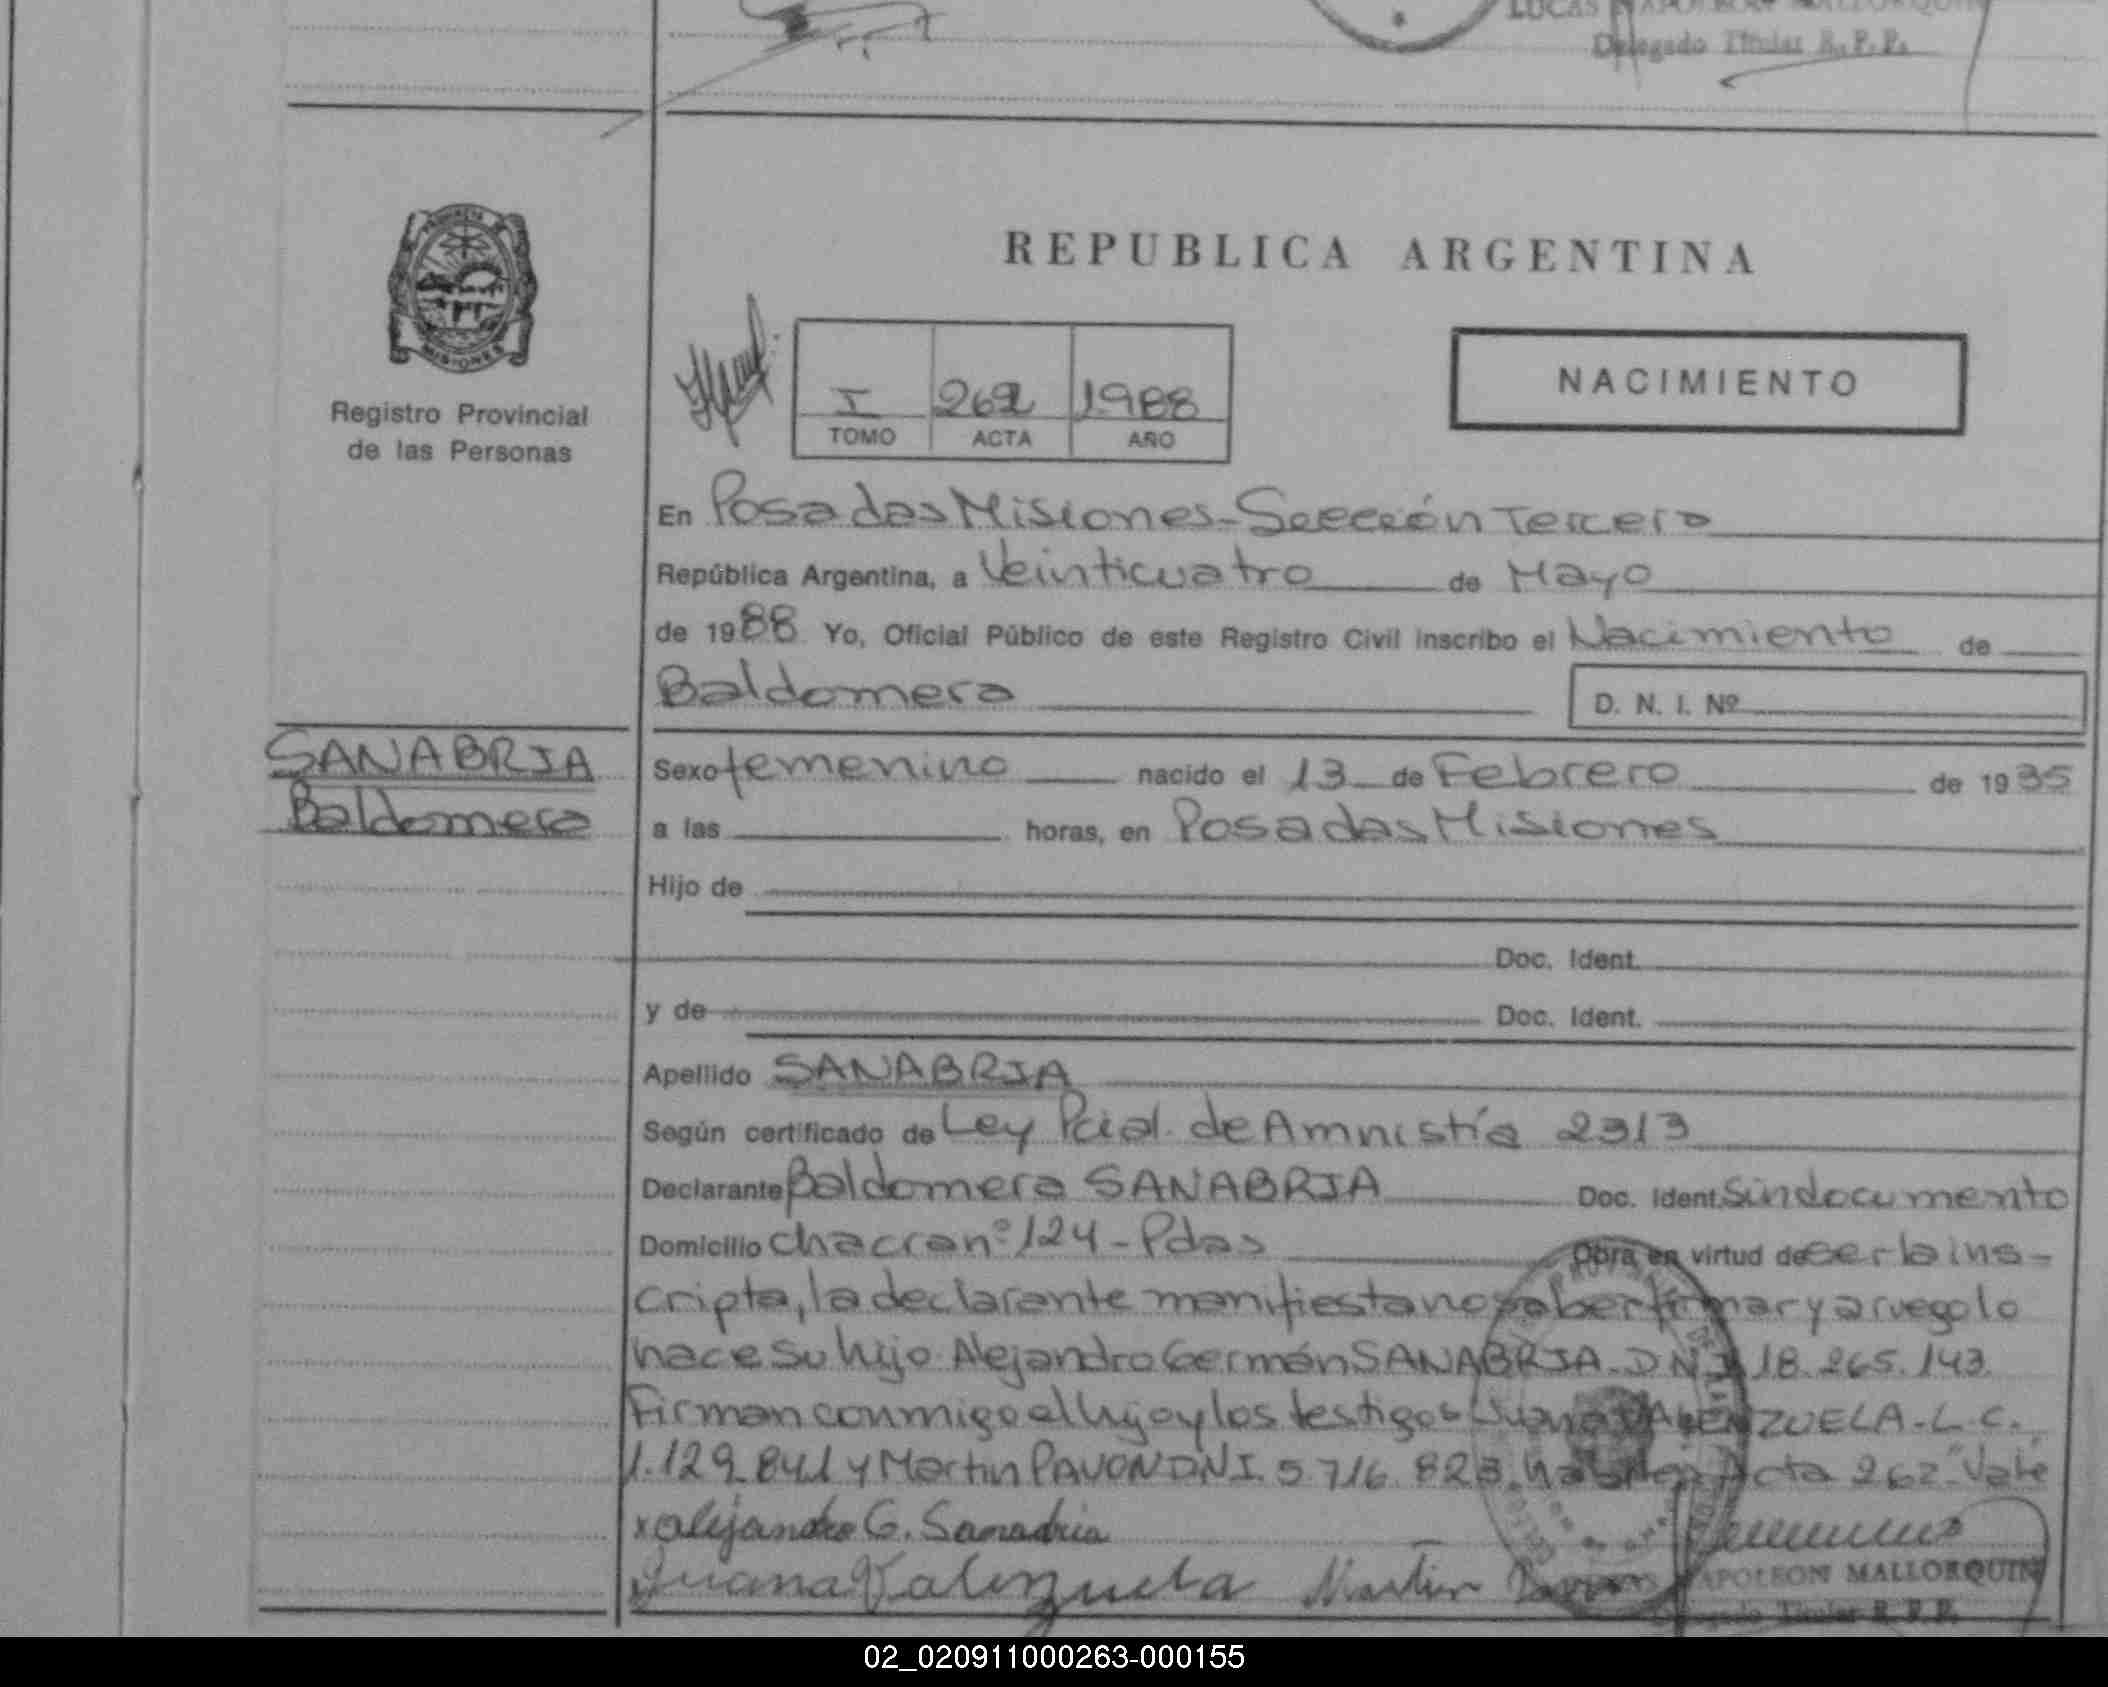 LUCAS NAPOLEON MALLORQUIN
Delegado Titular R. P. P.
MISIONES
Registro Provincial
de las Personas
REPUBLICA ARGENTINA
I 262 1988
TOMO ACTA AÑO
NACIMIENTO
En Posadas Misiones - Sección Tercera
República Argentina, a Veinticuatro de Mayo
de 1988 Yo, Oficial Público de este Registro Civil inscribo el Nacimiento de
Baldomera
D. N. I. Nº
SANABRIA
Baldomera
Sexo femenino nacido el 13 de Febrero de 1935
a las horas, en Posadas Misiones
Hijo de
Doc. Ident.
y de Doc. Ident.
Apellido SANABRIA
Según certificado de Ley Pcial. de Amnistía 2313
Declarante Baldomera SANABRIA Doc. Ident. Sin documento
Domicilio chacra nº 124 - Pdas Obra en virtud de ser la ins-
cripta, la declarante manifiesta no saber firmar y a ruego lo
hace su hijo Alejandro Germán SANABRIA - DNI 18.265.143
Firman conmigo el hijo y los testigos Juana VALENZUELA - L.C.
1.129.841 y Martin PAVON DNI. 5.716.823. Acta 262 "Vale
x alejandro G. Sanabria
Juana Valenzuela Martin
NAPOLEON MALLORQUIN
Delegado Titular R. P. P.
02_020911000263-000155